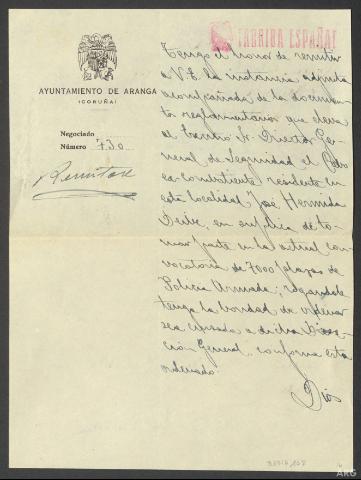 ¡ARRIBA ESPAÑA!
AYUNTAMIENTO DE ARANGA
(CORUÑA)
Negociado
Número 730
Remitase
Tengo el honor de remitir
a V.E. la instancia adjunta
acompañada de la documen
reglamentaria que eleva
al Excmo Sr. Director Ge-
neral de Seguridad el
ex-combatiente residente en
esta localidad José Hermida
en suplica de to-
mar parte en la actual con-
vocatoria de 7000 plazas de
Policia Armada; rogandole
tenga la bondad de ordenar
sea cursada a dicha Direc-
ción General, conforme esta
ordenado.
Dios
ARG